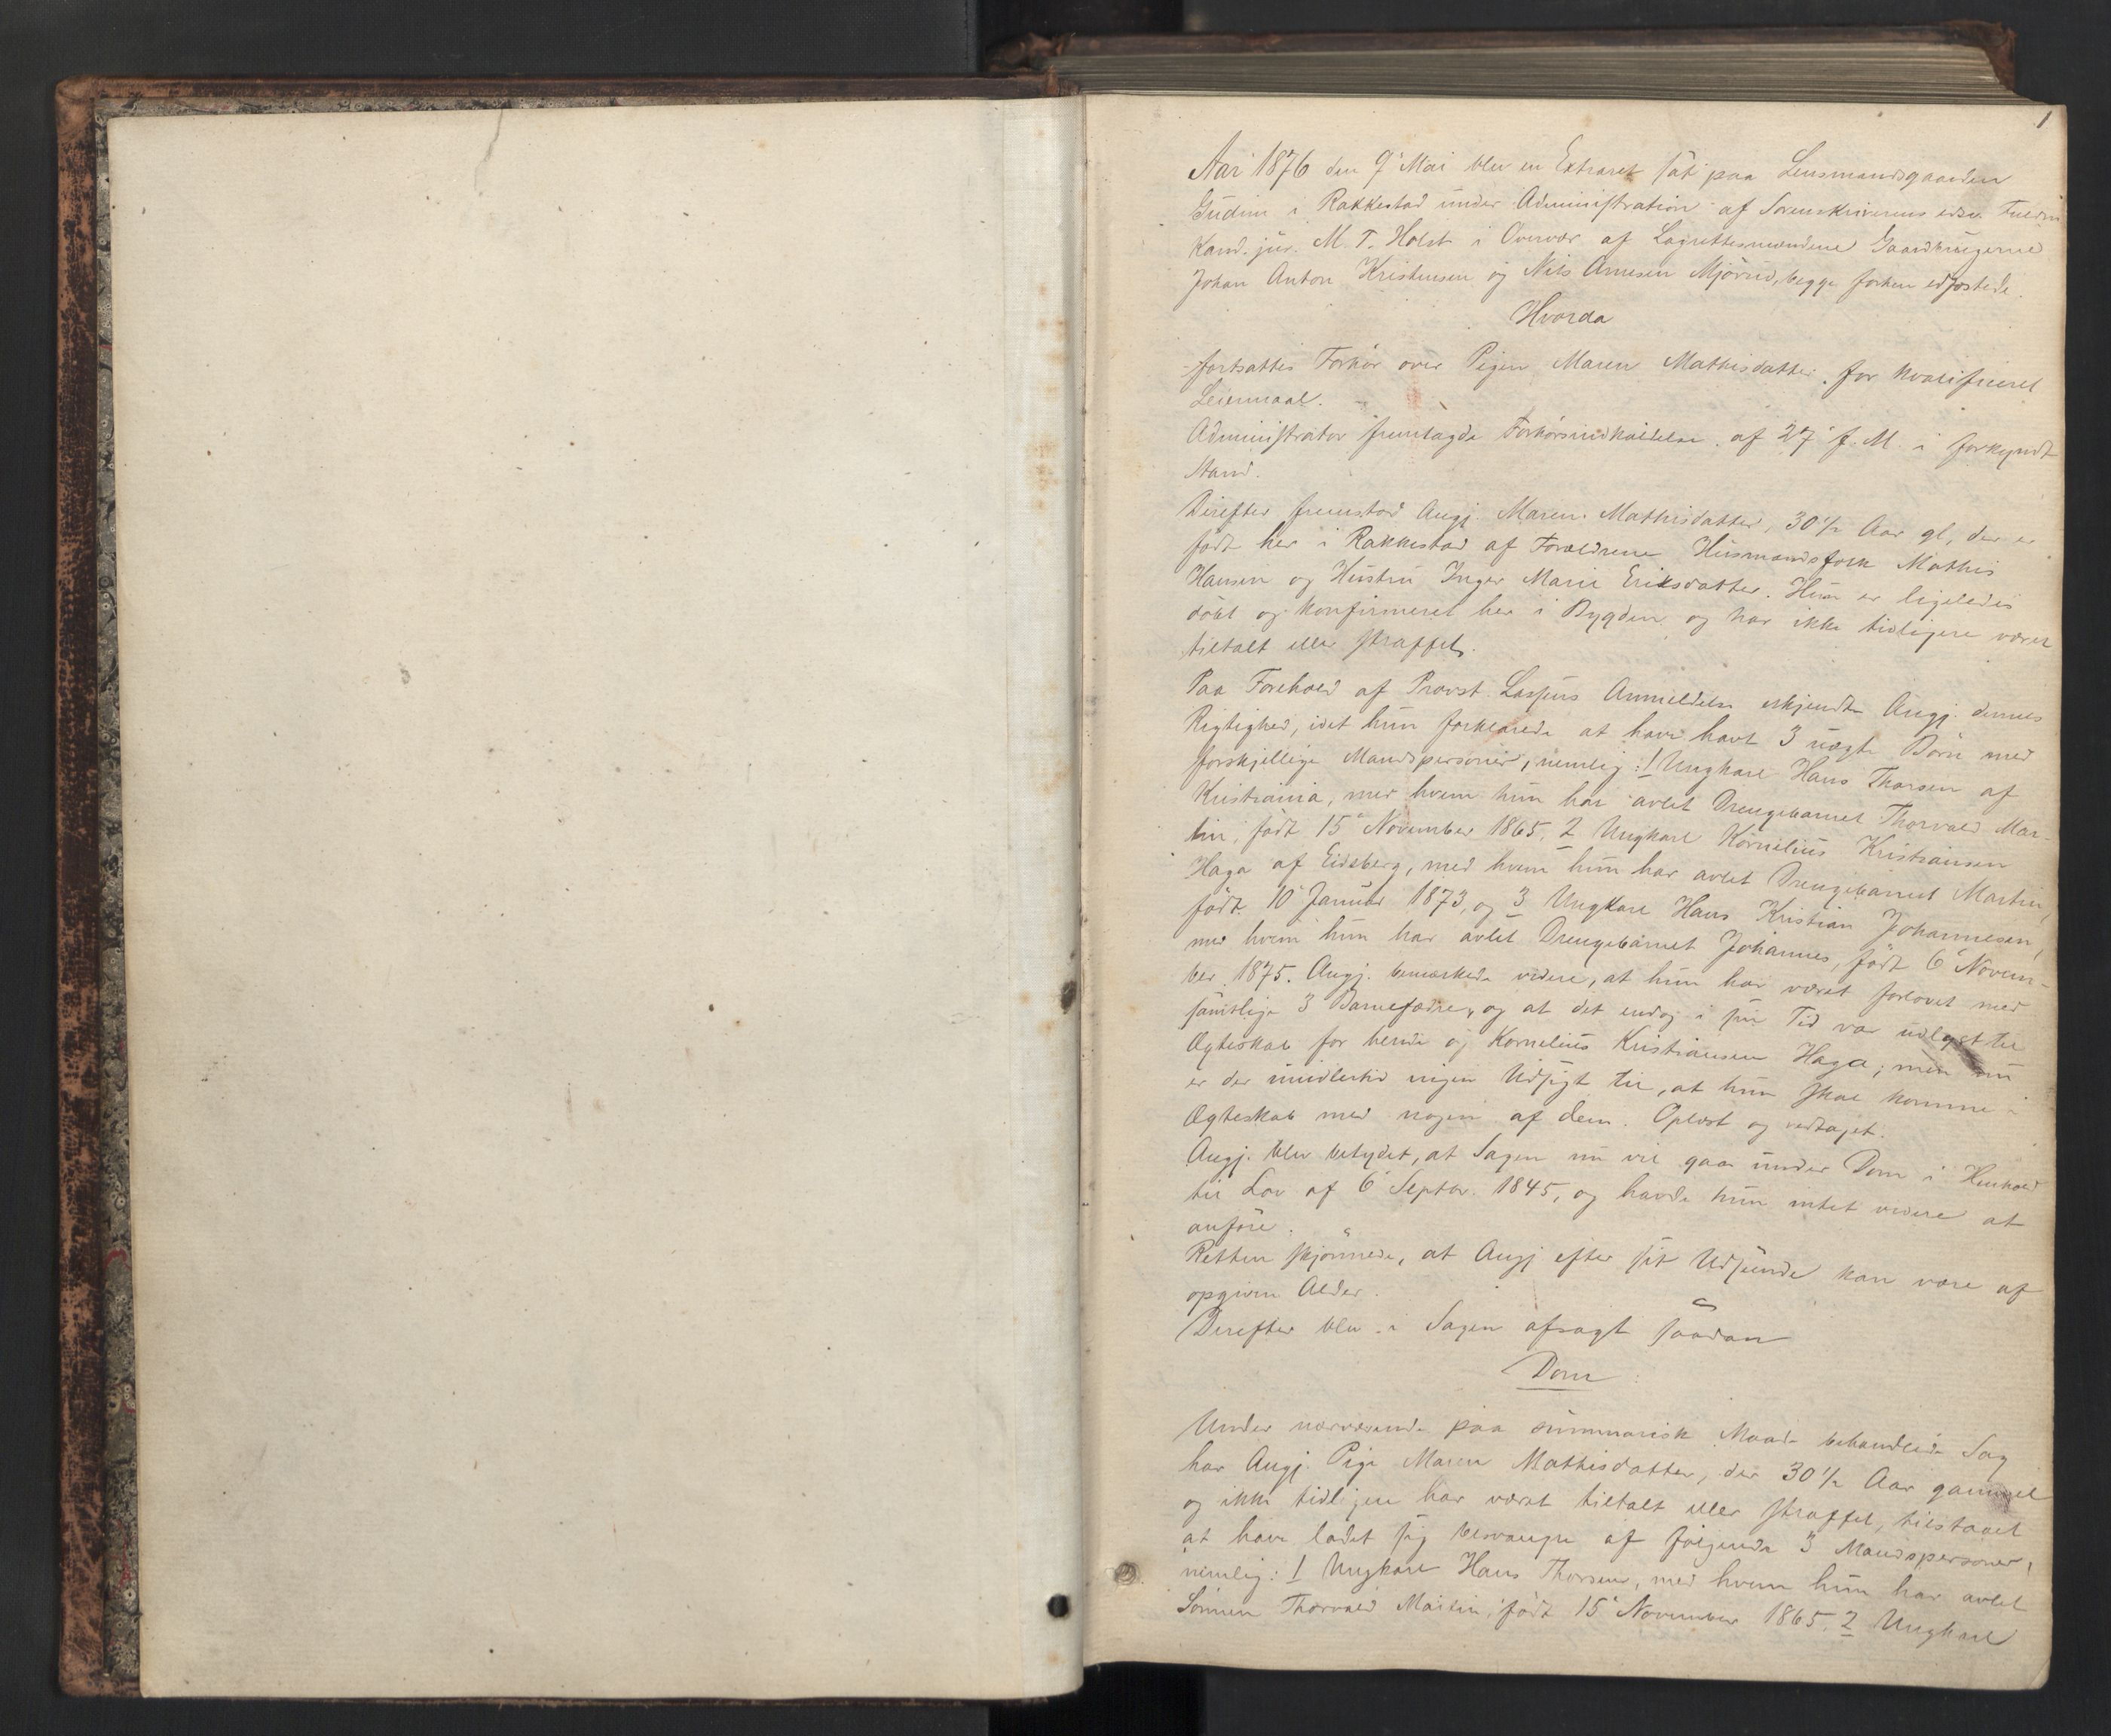 1
Aar 1876 den 9' Mai blev en Extraret sat paa Lensmandsgaarden
Gudim i Rakkestad under Administration af Sorenskriverens edsv. Fuldm.
Kand. jur. M. T. Holst i Overvær af Lagrettesmændene Gaardbrugerne
Johan Anton Kristensen og Nils Arnesen Mjörud, begge forhen edfæstede.
Hvorda
fortsattes Forhör over Pigen Maren Mathisdatter for kvalificeret
Leiermaal.
Administrator fremlagde Forhörsindkaldelse af 27' f. M. i forkyndt
Stand.
Derefter fremstod Angj. Maren Mathisdatter, 30 1/2 Aar gl, der er
födt her i Rakkestad af Forældrene Husmandsfolk Mathis
Hansen og Hustru Inger Marie Eriksdatter. Hun er ligeledes
döbt og konfirmeret her i Bygden og har ikke tidligere været
tiltalt eller straffet.
Paa Forehold af Provst Lassens Anmeldelse erkjendte Angj. dennes
Rigtighed, idet hun forklarede at have havt 3 uægte Börn med
forskjellige Mandspersoner, nemlig: 1 Ungkarl Hans Thorsen af
Kristiania, med hvem hun har avlet Drengebarnet Thorvald Mar-
tin, födt 15' November 1865, 2 Ungkarl Kornelius Kristiansen
Haga af Eidsberg, med hvem hun har avlet Drengebarnet Martin,
födt 10' Januar 1873, og 3 Ungkarl Hans Kristian Johannesen,
med hvem hun har avlet Drengebarnet Johannes, födt 6' Novem-
ber 1875. Angj. bemærkede videre, at hun har været forlovet med
samtlige 3 Barnefædre, og at det endog i sin Tid var udlyst til
Ægteskab for hende og Kornelius Kristiansen Haga; men nu
er der imidlertid ingen Udsigt til, at hun skal komme i
Ægteskab med nogen af dem. Oplæst og vedtaget.
Angj. blev betydet, at Sagen nu vil gaa under Dom i Henhold
til Lov af 6' Septbr. 1845, og havde hun intet videre at
anföre.
Retten skjönnede, at Angj efter sit Udseende kan være af
opgiven Alder.
Derefter blev i Sagen afsagt saadan
Dom
Under nærværende paa summarisk Maade behandlede Sag
har Angj. Pige Maren Mathisdatter, der 30 1/2 Aar gammel
og ikke tidligere har været tiltalt eller straffet, tilstaaet
at have ladet sig besvangre af fölgende 3 Mandspersoner,
nemlig: 1 Ungkarl Hans Thorsen, med hvem hun har avlet
Sönnen Thorvald Martin, födt 15' November 1865, 2 Ungkarl